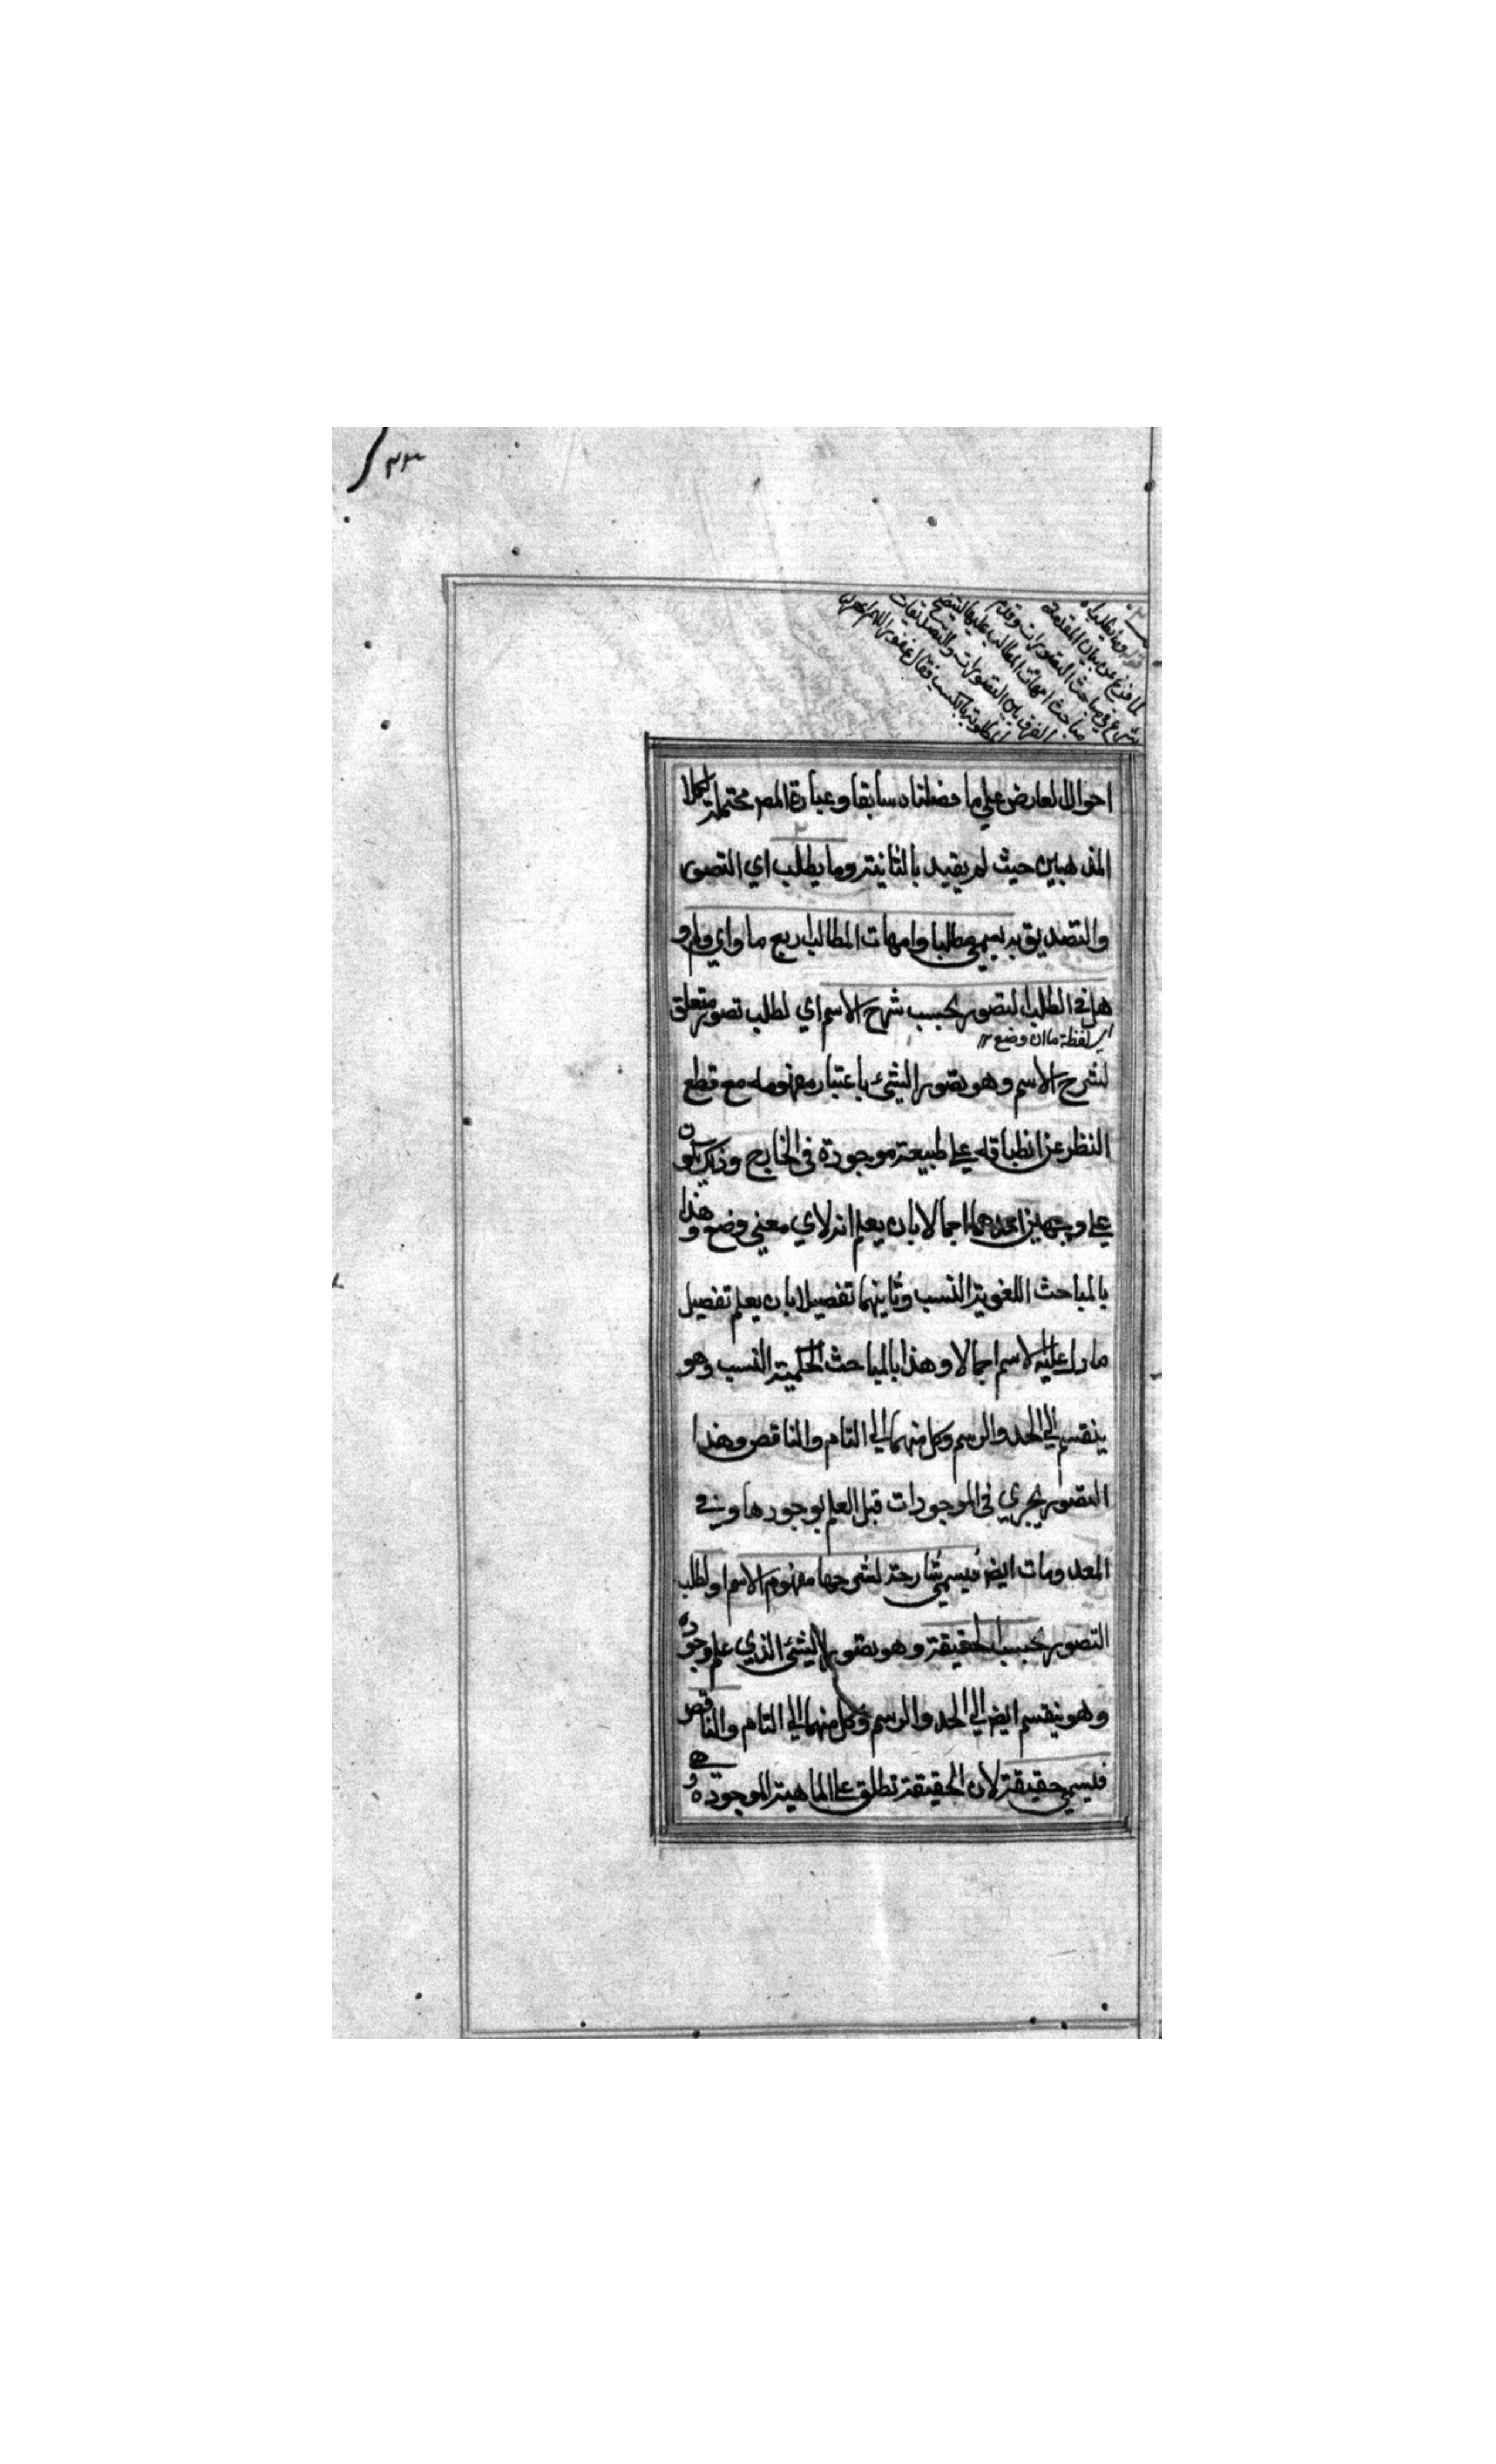 ٣٢
وما يطلب به
لما فرغ من بيان المقدمة
شرع في مباحث التصورات وقدم
مباحث امهات المطالب عليها لتتضح
الفرق بين التصورات والتصديقات
المطلوبة بالكسب فقال
احوال العارض علي ما فصلناه سابقا وعبارة المص محتملة لكلا
المذهبين حيث لم يقيد بالثانية وما يطلب اي التصور
والتصديق به يسمي مطلبا وامهات المطالب اربع ما واي ولم و
هل فما لطلب التصور بحسب شرح الاسم اي لطلب تصور متعلق
اي لفظة ما ان وضع ١٢
لشرح الاسم وهو تصور الشئ باعتبار مفهومه مع قطع
النظر عن انطباقه علي طبيعة موجودة في الخارج وذلك يكون
علي وجهين احدهما اجمالا بان يعلم انه لاي معني وضع وهذا
بالمباحث اللغوية انسب وثانيهما تفصيلا بان يعلم تفصيل
ما دل عليه الاسم اجمالا وهذا بالمباحث الحكمية انسب وهو
ينقسم الي الحد والرسم وكل منهما الي التام والناقص وهذا
التصور يجري في الموجودات قبل العلم بوجودها وفي
المعدومات ايض فيسمي شارحة لشرحها مفهوم الاسم او لطلب
التصور بحسب الحقيقة وهو تصور الشئ الذي علم وجوده
وهو ينقسم ايض الي الحد والرسم وكل منهما الي التام والناقص
فيسمي حقيقة لان الحقيقة تطلق علي الماهية الموجودة وهي